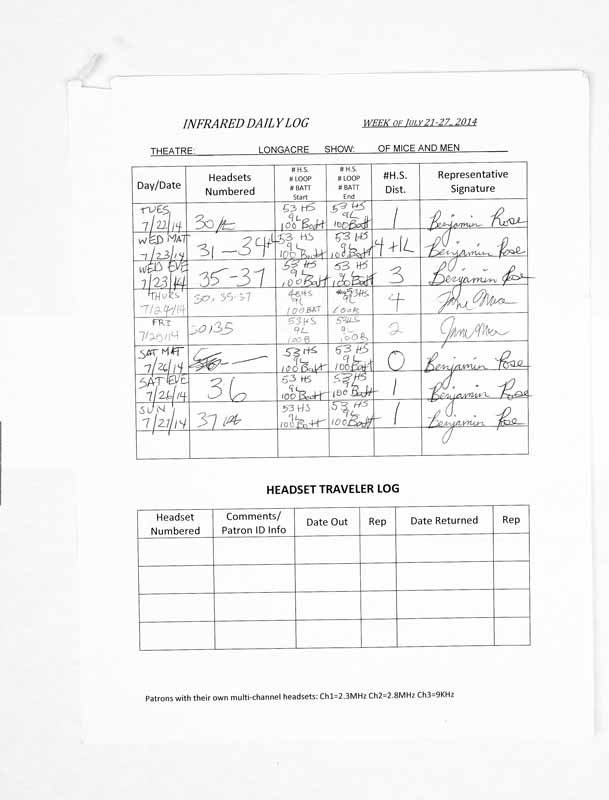 INFRARED DAILY LOG WEEK OF JULY 21-27, 2014
THEATRE: LONGACRE SHOW: OF MICE AND MEN
Day/Date Headsets Numbered # H.S. # LOOP # BATT Start # H.S. # LOOP # BATT End #H.S. Dist. Representative Signature
TUES 7/22/14 30 53 HS 9L 100 Batt 53 HS 9L 100 Batt 1 Benjamin Rose
WED MAT 7/23/14 31-34+L 53 HS 9L 100 Batt 53 HS 9L 100 Batt 4+1L Benjamin Rose
WED EVE 7/23/14 35-37 53 HS 9L 100 Batt 53 HS 9L 100 Batt 3 Benjamin Rose
THURS 7/24/14 30, 35-37 HS 9L 100 BAT 53HS 9L 100B 4
FRI 7/25/14 30,35 53HS 9L 100B 53HS 9L 100B 2
SAT MAT 7/26/14 53 HS 9L 100 Batt 53 HS 9L 100 Batt 0 Benjamin Rose
SAT EVE 7/26/14 36 53 HS 9L 100 Batt 53 HS 9L 100 Batt 1 Benjamin Rose
SUN 7/27/14 37 53 HS 9L 100 Batt 53 HS 9L 100 Batt 1 Benjamin Rose
HEADSET TRAVELER LOG
Headset Numbered Comments/ Patron ID Info Date Out Rep Date Returned Rep
Patrons with their own multi-channel headsets: Ch1=2.3MHz Ch2=2.8MHz Ch3=9KHz